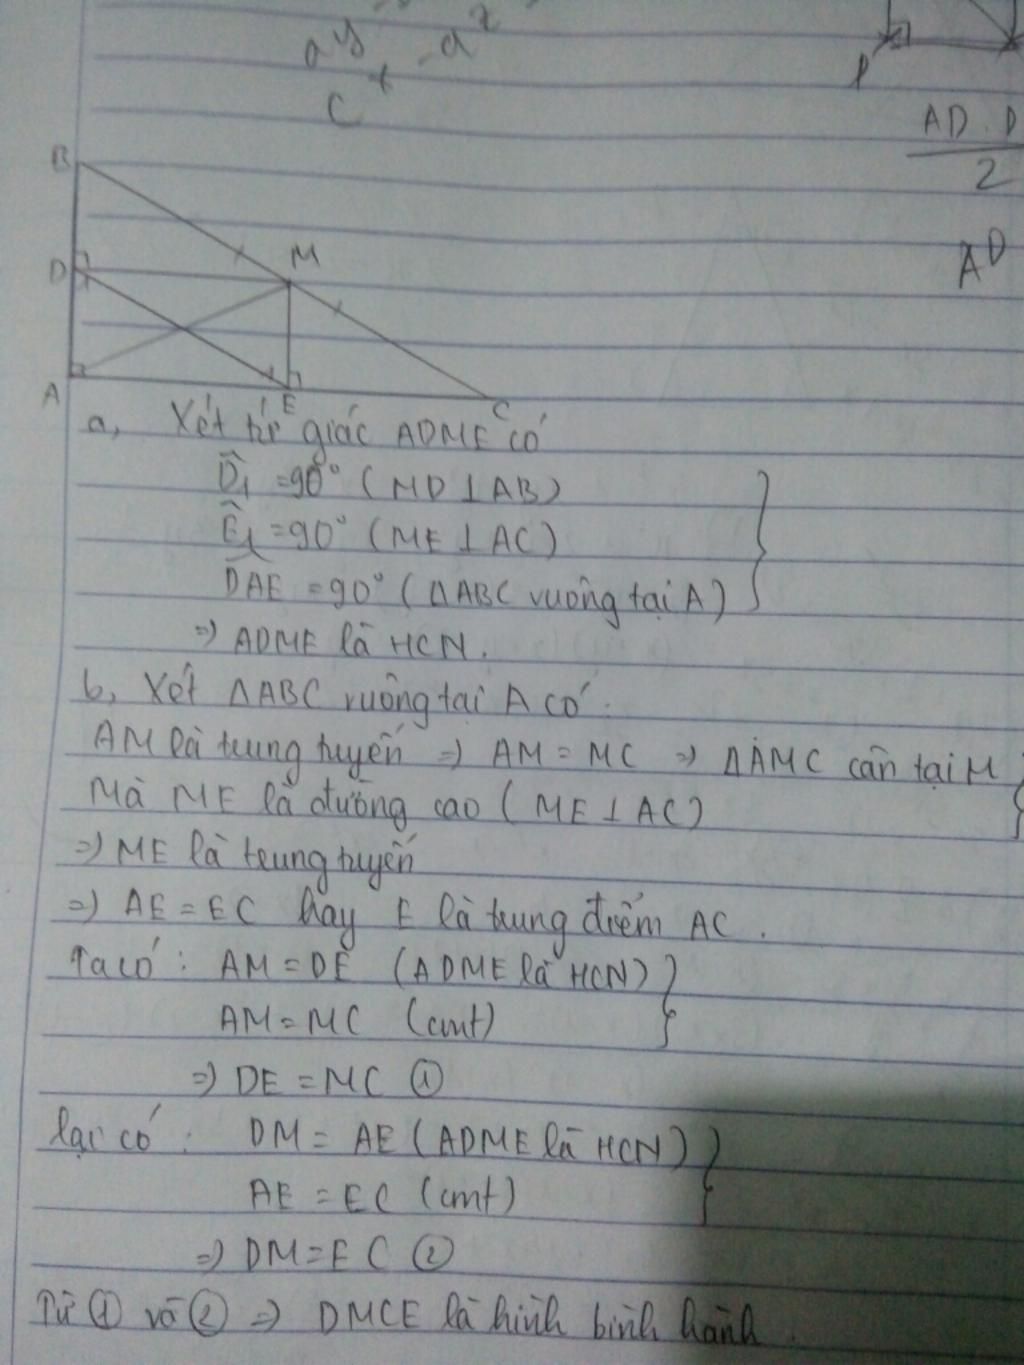 a^y + -a^x
C
P
AD . D
2
AD
B
D
M
A
E
C
a, Xét tứ giác ADME có
D̂₁ = 90° (MD ⊥ AB)
Ê₁ = 90° (ME ⊥ AC)
DAE = 90° (ΔABC vuông tại A)
=> ADME là HCN.
b, Xét ΔABC vuông tại A có:
AM là trung tuyến => AM = MC => ΔAMC cân tại M
Mà ME là đường cao (ME ⊥ AC)
=> ME là trung tuyến
=> AE = EC hay E là trung điểm AC.
Ta có: AM = DE (ADME là HCN)
AM = MC (cmt)
=> DE = MC ①
lại có: DM = AE (ADME là HCN)
AE = EC (cmt)
=> DM = EC ②
Từ ① và ② => DMCE là hình bình hành.